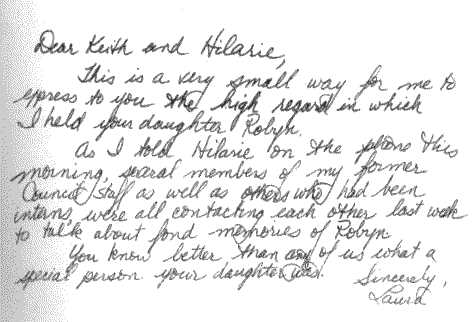 Dear Keith and Hilarie,
This is a very small way for me to
express to you the high regard in which
I held your daughter Robyn.
As I told Hilarie on the phone this
morning, several members of my former
Council staff as well as others who had been
interns, were all contacting each other last week
to talk about fond memories of Robyn
You know better, than any of us what a
special person your daughter was.
Sincerely,
Laura